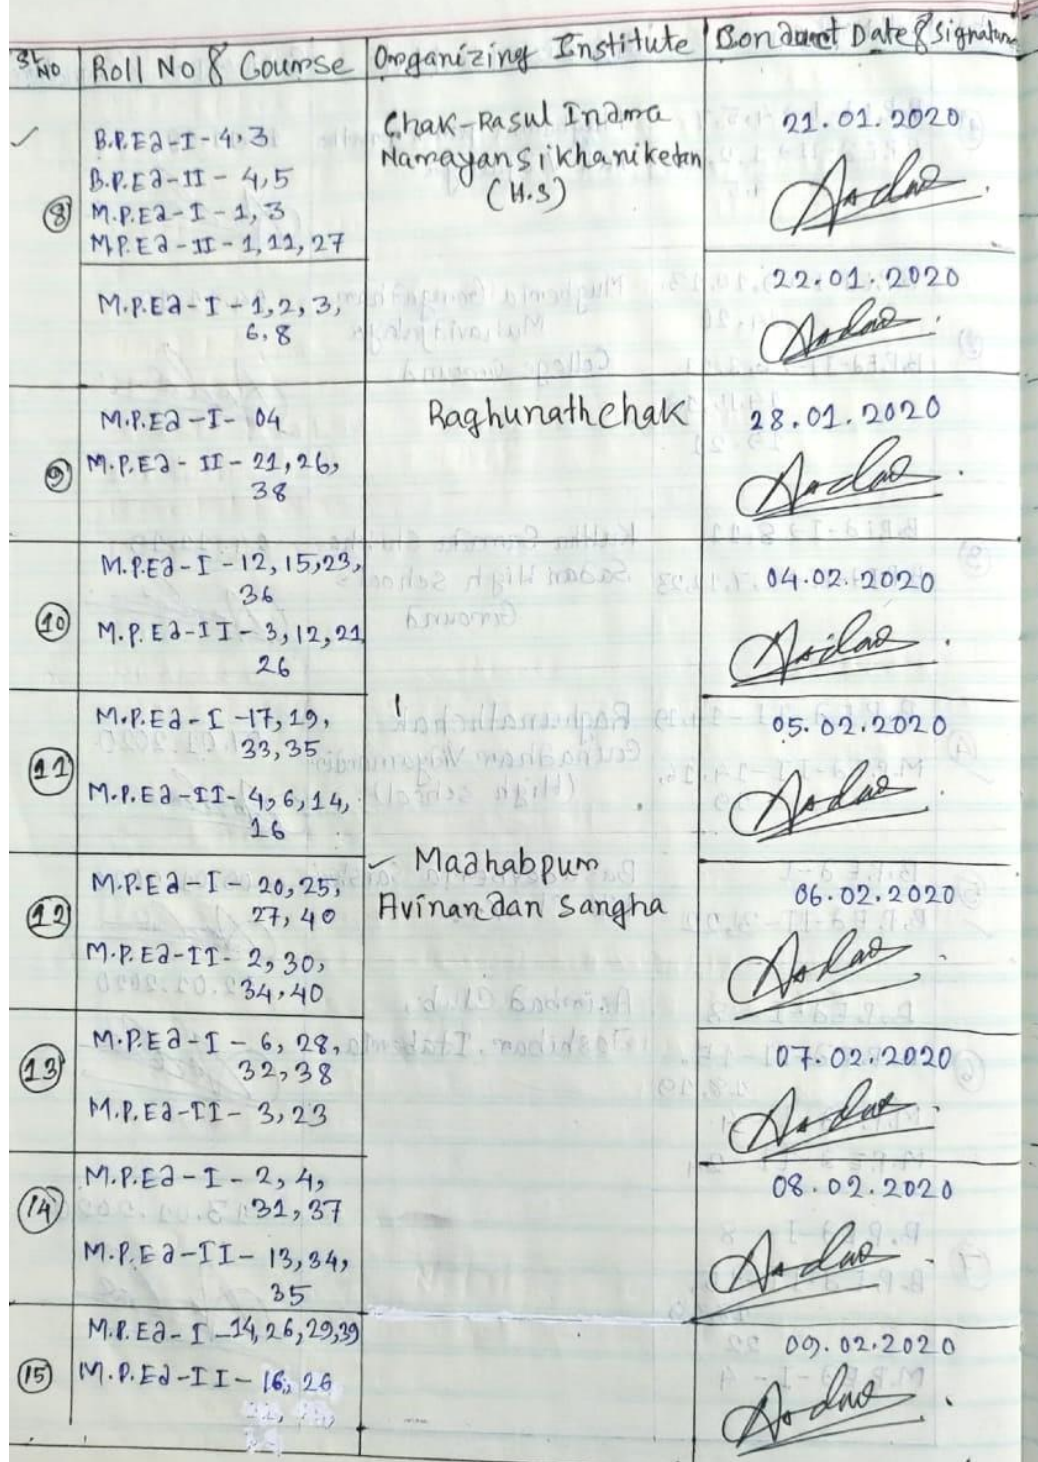 Sl. No | Roll No & Course | Organizing Institute | Conduct Date & Signature
B.P.Ed-I-4,3
B.P.Ed-II - 4,5
(8) M.P.Ed-I-1,3
M.P.Ed-II-1,11,27
Chak-Rasul Indra
Narayan Sikhaniketan
(H.S)
21.01.2020
M.P.Ed-I-1,2,3,
6,8
22.01.2020
M.P.Ed-I- 04
(9) M.P.Ed- II-21,26,
38
Raghunathchak
28.01.2020
M.P.Ed-I-12,15,23,
36
(10) M.P.Ed-II-3,12,21
26
04.02.2020
M.P.Ed-I-17,19,
33,35
(11) M.P.Ed-II-4,6,14,
16
05.02.2020
M.P.Ed-I-20,25,
(12) 27,40
M.P.Ed-II-2,30,
34,40
Madhabpur
Avinandan Sangha
06.02.2020
M.P.Ed-I-6,28,
(13) 32,38
M.P.Ed-II-3,23
07.02.2020
M.P.Ed-I-2,4,
(14) 31,37
M.P.Ed-II-13,34,
35
08.02.2020
M.P.Ed-I-14,26,29,39
(15) M.P.Ed-II-16,26
09.02.2020